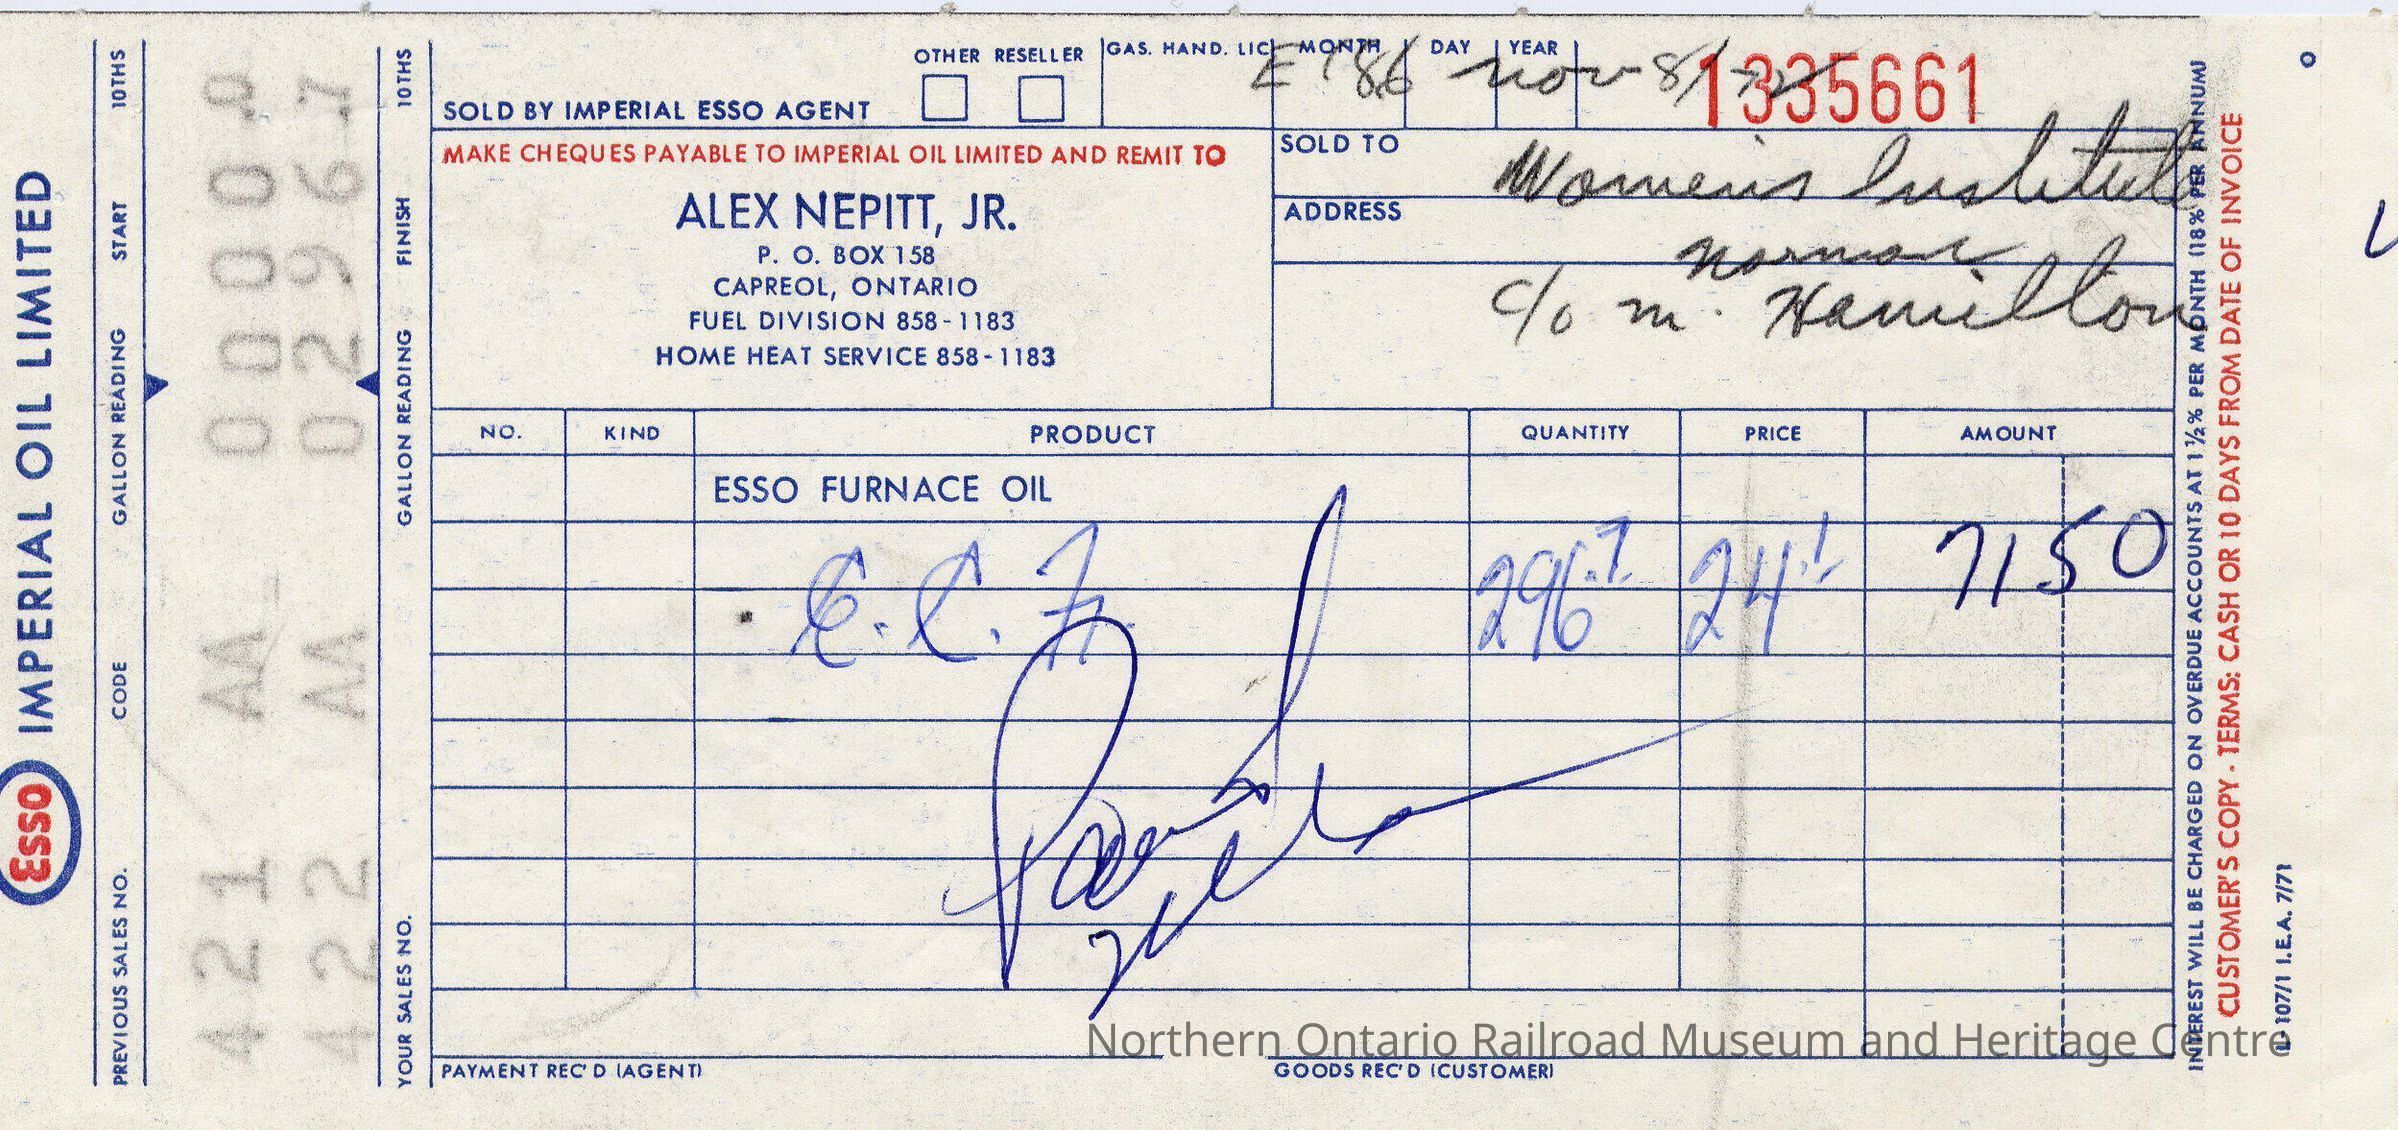 ESSO IMPERIAL OIL LIMITED
PREVIOUS SALES NO. CODE GALLON READING START 10THS
421 AA 0000.0
422 AA 0296.7
YOUR SALES NO. GALLON READING FINISH 10THS
OTHER RESELLER GAS. HAND. LIC. MONTH DAY YEAR
SOLD BY IMPERIAL ESSO AGENT
E'86 Nov 8/72 1335661
MAKE CHEQUES PAYABLE TO IMPERIAL OIL LIMITED AND REMIT TO
ALEX NEPITT, JR.
P. O. BOX 158
CAPREOL, ONTARIO
FUEL DIVISION 858-1183
HOME HEAT SERVICE 858-1183
SOLD TO Women's Institute
ADDRESS
Norman
c/o m. Hamilton
NO. KIND PRODUCT QUANTITY PRICE AMOUNT
ESSO FURNACE OIL
296.7 24.1 71 50
Paid
PAYMENT REC'D (AGENT) GOODS REC'D (CUSTOMER)
INTEREST WILL BE CHARGED ON OVERDUE ACCOUNTS AT 1½% PER MONTH (18% PER ANNUM)
CUSTOMER'S COPY - TERMS: CASH OR 10 DAYS FROM DATE OF INVOICE
107/1 I.E.A. 7/71
Northern Ontario Railroad Museum and Heritage Centre